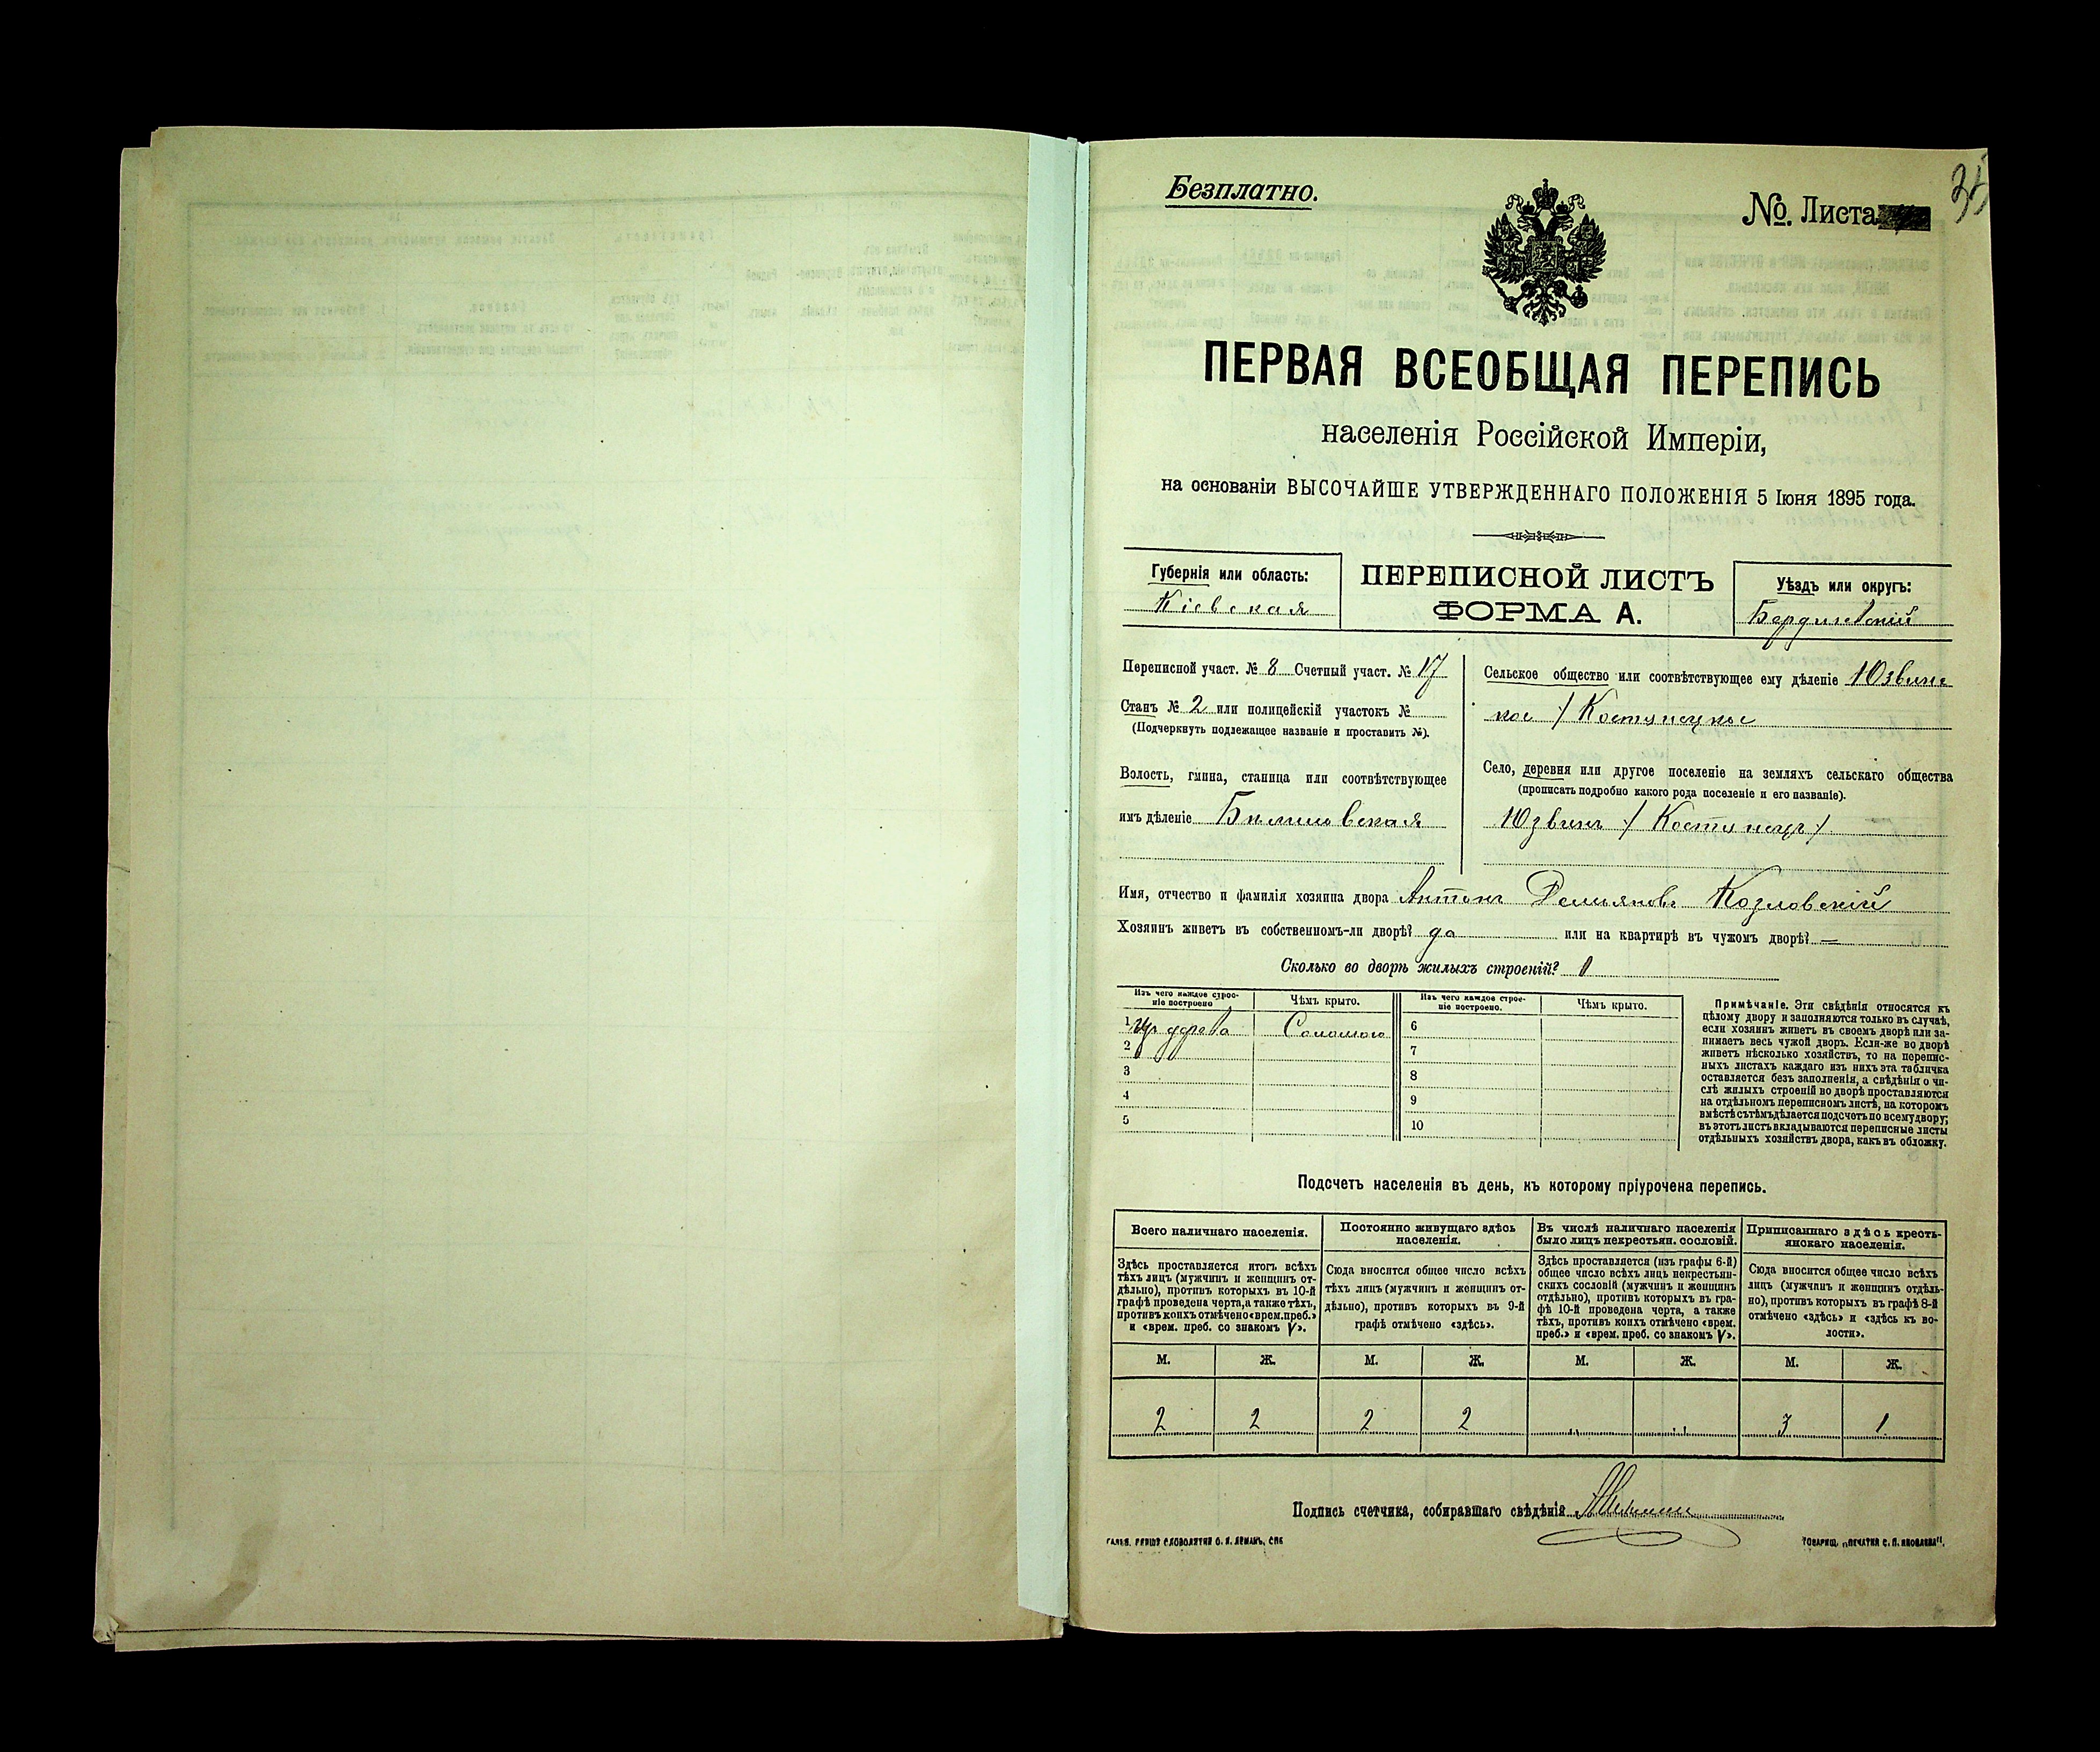 Безплатно.
№. Листа
35
ПЕРВАЯ ВСЕОБЩАЯ ПЕРЕПИСЬ
населенія Россійской Имперіи,
на основаніи ВЫСОЧАЙШЕ УТВЕРЖДЕННАГО ПОЛОЖЕНІЯ 5 Іюня 1895 года.
Губернія или область:
Кіевская
ПЕРЕПИСНОЙ ЛИСТЪ
ФОРМА А.
Уѣздъ или округъ:
Бердичевскій
Переписной участ. № 8 Счетный участ. № 17
Станъ № 2 или полицейскій участокъ №
(Подчеркнуть подлежащее названіе и проставить №).
Волость, гмина, станица или соотвѣтствующее
имъ дѣленіе Бѣлиловская
Сельское общество или соотвѣтствующее ему дѣленіе Юзвин
ское / Костунецкое
Село, деревня или другое поселеніе на земляхъ сельскаго общества
(прописать подробно какого рода поселеніе и его названіе).
Юзвинъ / Костунецъ /
Имя, отчество и фамилія хозяина двора Антонъ Демьяновъ Козловскій
Хозяинъ живетъ въ собственномъ-ли дворѣ? да или на квартирѣ въ чужомъ дворѣ? —
Сколько во дворѣ жилыхъ строеній? 1
Изъ чего каждое строе-
ніе построено
Чѣмъ крыто.
Изъ чего каждое строе-
ніе построено.
Чѣмъ крыто.
1 изъ дерева Соломою
2
3
4
5
6
7
8
9
10
Примѣчаніе. Эти свѣдѣнія относятся къ
цѣлому двору и заполняются только въ случаѣ,
если хозяинъ живетъ въ своемъ дворѣ или за-
нимаетъ весь чужой дворъ. Если-же во дворѣ
живетъ нѣсколько хозяйствъ, то на перепис-
ныхъ листахъ каждаго изъ нихъ эта табличка
оставляется безъ заполненія, а свѣдѣнія о чи-
слѣ жилыхъ строеній во дворѣ проставляются
на отдѣльномъ переписномъ листѣ, на которомъ
вмѣстѣ съ тѣмъ дѣлается подсчетъ по всему двору;
въ этотъ листъ вкладываются переписные листы
отдѣльныхъ хозяйствъ двора, какъ въ обложку.
Подсчетъ населенія въ день, къ которому пріурочена перепись.
Всего наличнаго населенія.
Здѣсь проставляется итогъ всѣхъ
тѣхъ лицъ (мужчинъ и женщинъ от-
дѣльно), противъ которыхъ въ 10-й
графѣ проведена черта, а также тѣхъ,
противъ коихъ отмѣчено «врем. преб.»
и «врем. преб. со знакомъ V».
Постоянно живущаго здѣсь
населенія.
Сюда вносится общее число всѣхъ
тѣхъ лицъ (мужчинъ и женщинъ от-
дѣльно), противъ которыхъ въ 9-й
графѣ отмѣчено «здѣсь».
Въ числѣ наличнаго населенія
было лицъ некрестьян. сословій.
Здѣсь проставляется (изъ графы 6-й)
общее число всѣхъ лицъ некрестьян-
скихъ сословій (мужчинъ и женщинъ
отдѣльно), противъ которыхъ въ гра-
фѣ 10-й проведена черта, а также
тѣхъ, противъ коихъ отмѣчено «врем.
преб.» и «врем. преб. со знакомъ V».
Приписаннаго здѣсь кресть-
янскаго населенія.
Сюда вносится общее число всѣхъ
лицъ (мужчинъ и женщинъ отдѣль-
но), противъ которыхъ въ графѣ 8-й
отмѣчено «здѣсь» и «здѣсь къ во-
лости».
М. Ж. М. Ж. М. Ж. М. Ж.
2 2 2 2 „ „ 3 1
Подпись счетчика, собиравшаго свѣдѣнія
СЛОВОЛИТНИ О. И. ЛЕМАНЪ, СПБ
ТОВАРИЩ. „ПЕЧАТНЯ С. П. ЯКОВЛЕВА".